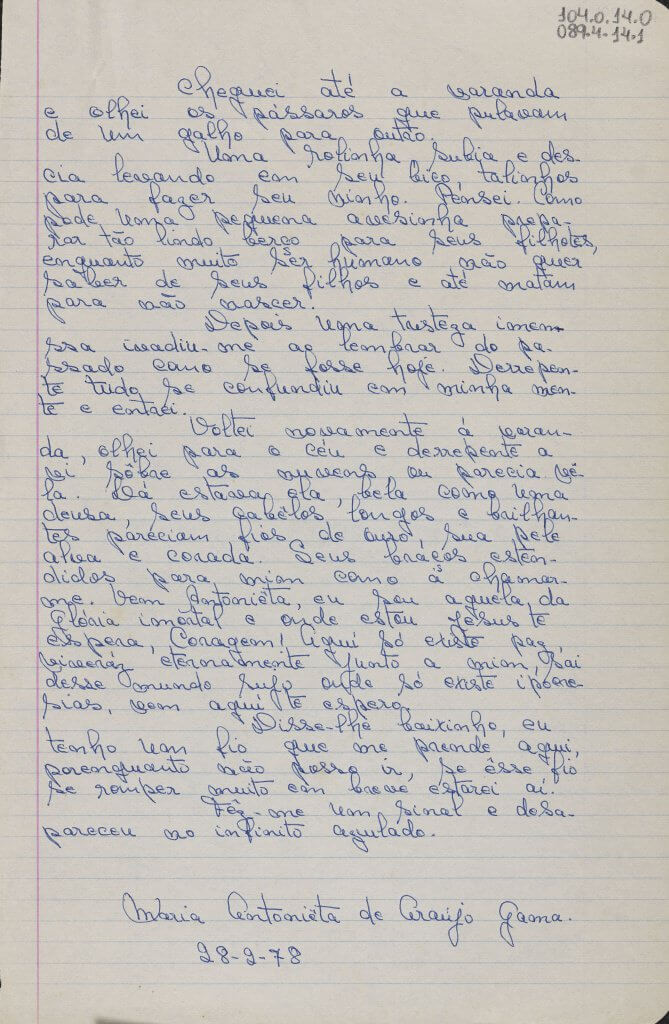 104.0.14.0
089.4-14.1
Cheguei até a varanda
e olhei os pássaros que pulavam
de um galho para outro.
Uma rolinha subia e des-
cia levando em seu bico, talinhos
para fazer seu ninho. Pensei. Como
pode uma pequena avesinha prepa-
rar tão lindo berço para seus filhotes,
enquanto muito ser humano não quer
saber de seus filhos e até matam
para não nascer.
Depois uma tristeza imen-
ssa invadiu-me ao lembrar do pa-
ssado como se fosse hoje. Derrepen-
te tudo se confundiu em minha men-
te e entrei.
Voltei novamente à varan-
da, olhei para o céu e derrepente a
vi sôbre as nuvens ou parecia vê-
la. Lá estava ela, bela como uma
deusa, seus cabêlos longos e brilhan-
tes pareciam fios de ouro, sua pele
alva e corada. Seus braços esten-
didos para mim como à chamar-
me. Vem Antoniêta, eu sou aquela, da
Glória imortal e onde estou Jesus te
espera, Coragem! Aqui só existe paz,
viveráz eternamente junto a mim, sai
desse mundo sujo onde só existe ipocre-
sias, vem aqui te espero.
Disse-lhe baixinho, eu
tenho um fio que me prende aqui,
porenquanto não posso ir, se êsse fio
se romper muito em breve estarei aí.
Fêz-me um sinal e desa-
pareceu no infinito azulado.
Maria Antoniêta de Araújo Gama.
28-2-78